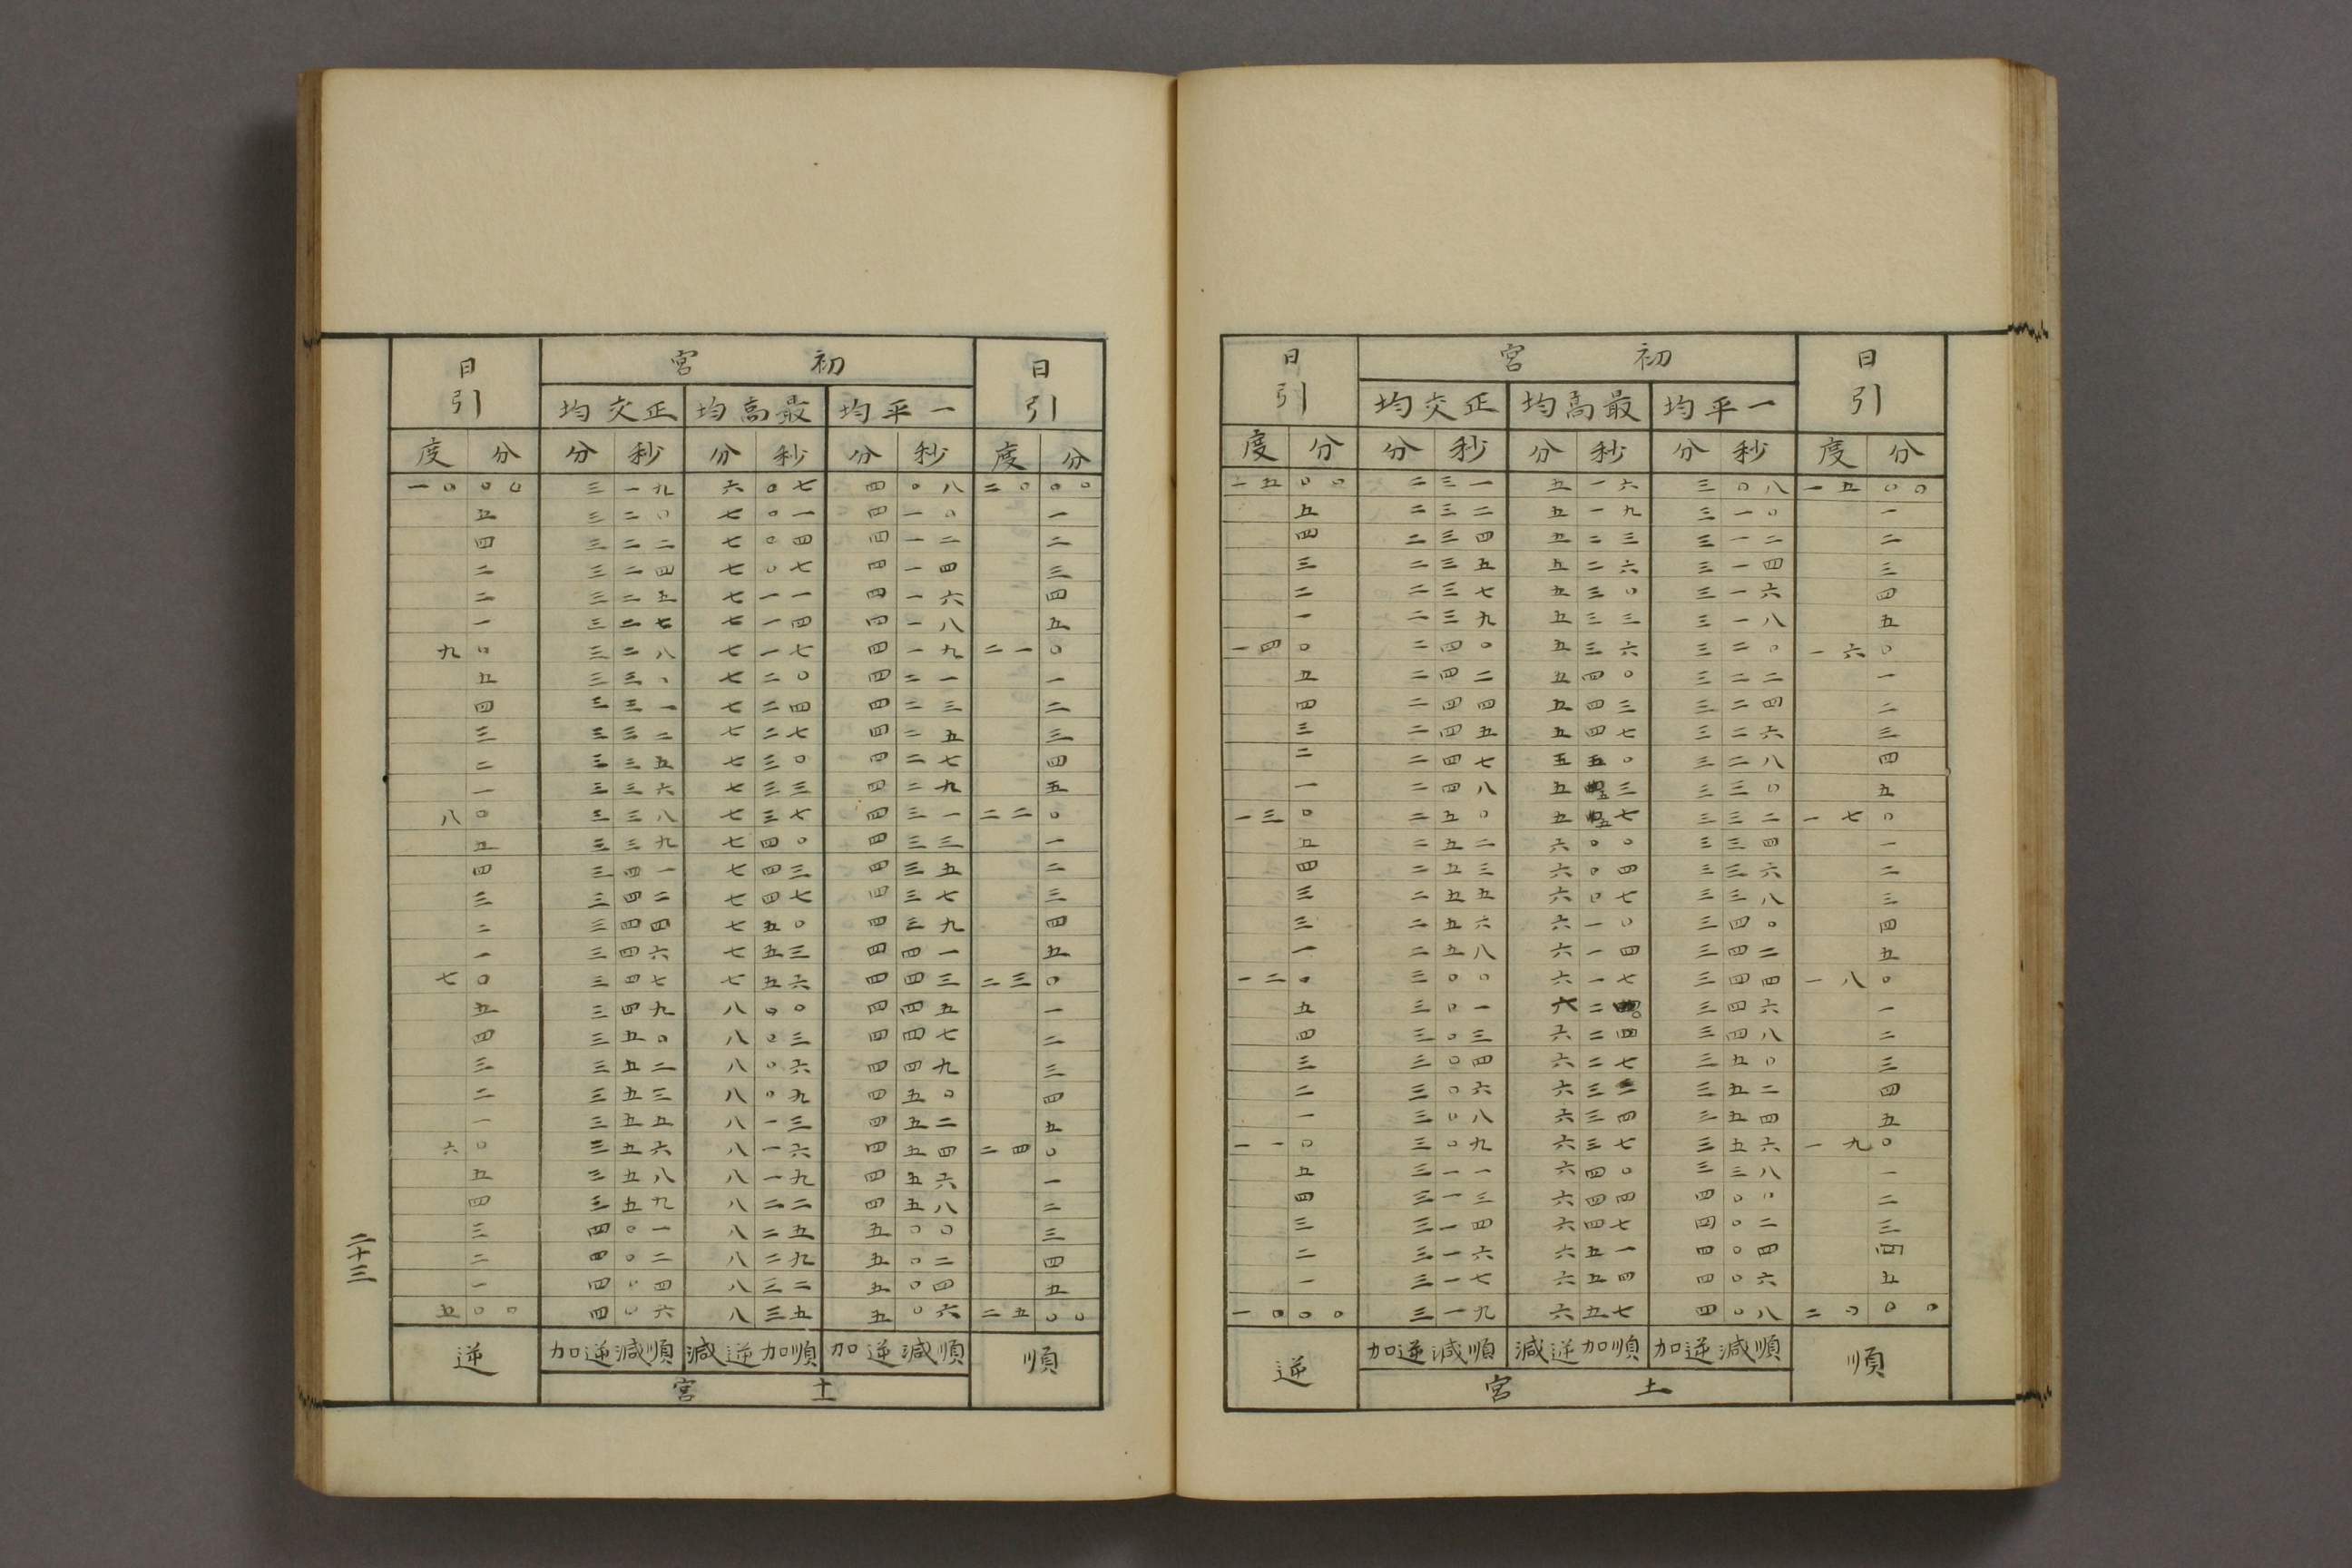 日引 初宮 日引
正交均 最高均 一平均
度 分 分 秒 分 秒 分 秒 度 分
一五 〇〇 二 三一 五 一六 三 〇八 一五 〇〇
五 二 三二 五 一九 三 一〇 一
四 二 三四 五 二三 三 一二 二
三 二 三五 五 二六 三 一四 三
二 二 三七 五 三〇 三 一六 四
一 二 三九 五 三三 三 一八 五
一四 〇 二 四〇 五 三六 三 二〇 一六 〇
五 二 四二 五 四〇 三 二二 一
四 二 四四 五 四三 三 二四 二
三 二 四五 五 四七 三 二六 三
二 二 四七 五 五〇 三 二八 四
一 二 四八 五 五三 三 三〇 五
一三 〇 二 五〇 五 五七 三 三二 一七 〇
五 二 五二 六 〇〇 三 三四 一
四 二 五三 六 〇四 三 三六 二
三 二 五五 六 〇七 三 三八 三
三 二 五六 六 一〇 三 四〇 四
一 二 五八 六 一四 三 四二 五
一二 〇 三 〇〇 六 一七 三 四四 一八 〇
五 三 〇一 六 二 三 四六 一
四 三 〇三 六 二四 三 四八 二
三 三 〇四 六 二七 三 五〇 三
二 三 〇六 六 三 三 五二 四
一 三 〇八 六 三四 三 五四 五
一一 〇 三 〇九 六 三七 三 五六 一九 〇
五 三 一一 六 四〇 三 三八 一
四 三 一三 六 四四 四 〇〇 二
三 三 一四 六 四七 四 〇二 三
二 三 一六 六 五一 四 〇四 四
一 三 一七 六 五四 四 〇六 五
一〇 〇〇 三 一九 六 五七 四 〇八 二〇 〇〇
逆 順減逆加 順加逆減 順減逆加 順
土宮
日引 初宮 日引
正交均 最高均 一平均
度 分 分 秒 分 秒 分 秒 度 分
一〇 〇〇 三 一九 六 〇七 四 〇八 二〇 〇〇
五 三 二〇 七 〇一 四 一〇 一
四 三 二二 七 〇四 四 一二 二
二 三 二四 七 〇七 四 一四 三
二 三 二五 七 一一 四 一六 四
一 三 二七 七 一四 四 一八 五
九 〇 三 二八 七 一七 四 一九 二一 〇
五 三 三〇 七 二〇 四 二一 一
四 三 三一 七 二四 四 二三 二
三 三 三二 七 二七 四 二五 三
二 三 三五 七 三〇 四 二七 四
一 三 三六 七 三三 四 二九 五
八 〇 三 三八 七 三七 四 三一 二二 〇
五 三 三九 七 四〇 四 三三 一
四 三 四一 七 四三 四 三五 二
三 三 四二 七 四七 四 三七 三
二 三 四四 七 五〇 四 三九 四
一 三 四六 七 五三 四 四一 五
七 〇 三 四七 七 五六 四 四三 二三 〇
五 三 四九 八 〇〇 四 四五 一
四 三 五〇 八 〇三 四 四七 二
三 三 五二 八 〇六 四 四九 三
二 三 五三 八 〇九 四 五〇 四
一 三 五五 八 一三 四 五二 五
六 〇 三 五六 八 一六 四 五四 二四 〇
五 三 五八 八 一九 四 五六 一
四 三 五九 八 二二 四 五八 二
三 四 〇一 八 二五 五 〇〇 三
二 四 〇二 八 二九 五 〇二 四
一 四 〇四 八 三二 五 〇四 五
五 〇〇 四 〇六 八 三五 五 〇六 二五 〇〇
逆 順減逆加 順加逆減 順減逆加 順
土宮
二十三